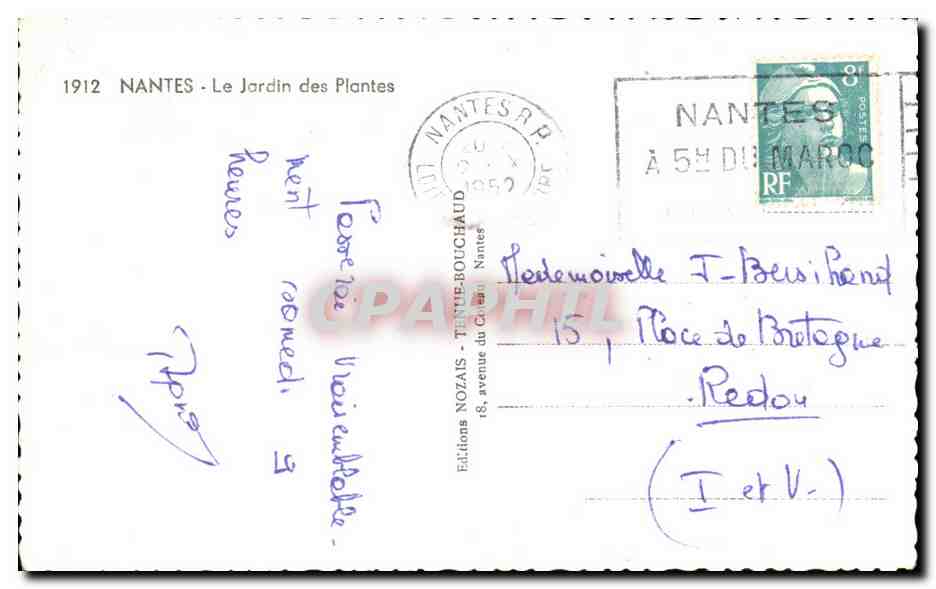 1912 NANTES - Le Jardin des Plantes
NANTES R.P.
1952
NANTES
À 5H DU MAROC
8F
POSTES
RF
Passerai vraisemblable-
ment samedi 9
heures
Editions NOZAIS - TENUE-BOUCHAUD
18, avenue du Coteau Nantes
Mademoiselle
15, Place de Bretagne
Redon
(I et V-)
CPAPHIL